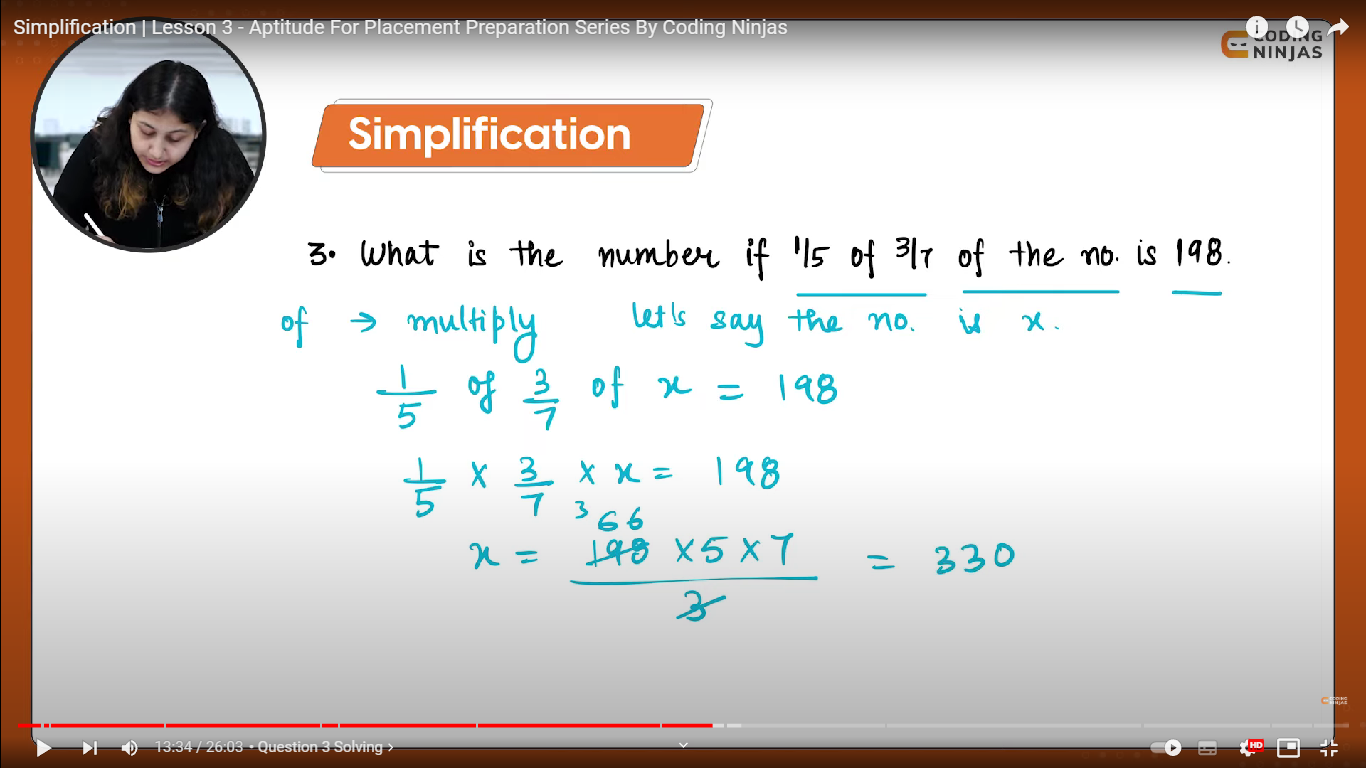 Simplification | Lesson 3 - Aptitude For Placement Preparation Series By Coding Ninjas
CODING
NINJAS
Simplification
3. What is the number if 1/5 of 3/7 of the no. is 198.
of → multiply let's say the no. is x.
1/5 of 3/7 of x = 198
1/5 × 3/7 × x = 198
3 66
x = 198 × 5 × 7 / 3 = 330
CODING
NINJAS
13:34 / 26:03 • Question 3 Solving >
HD